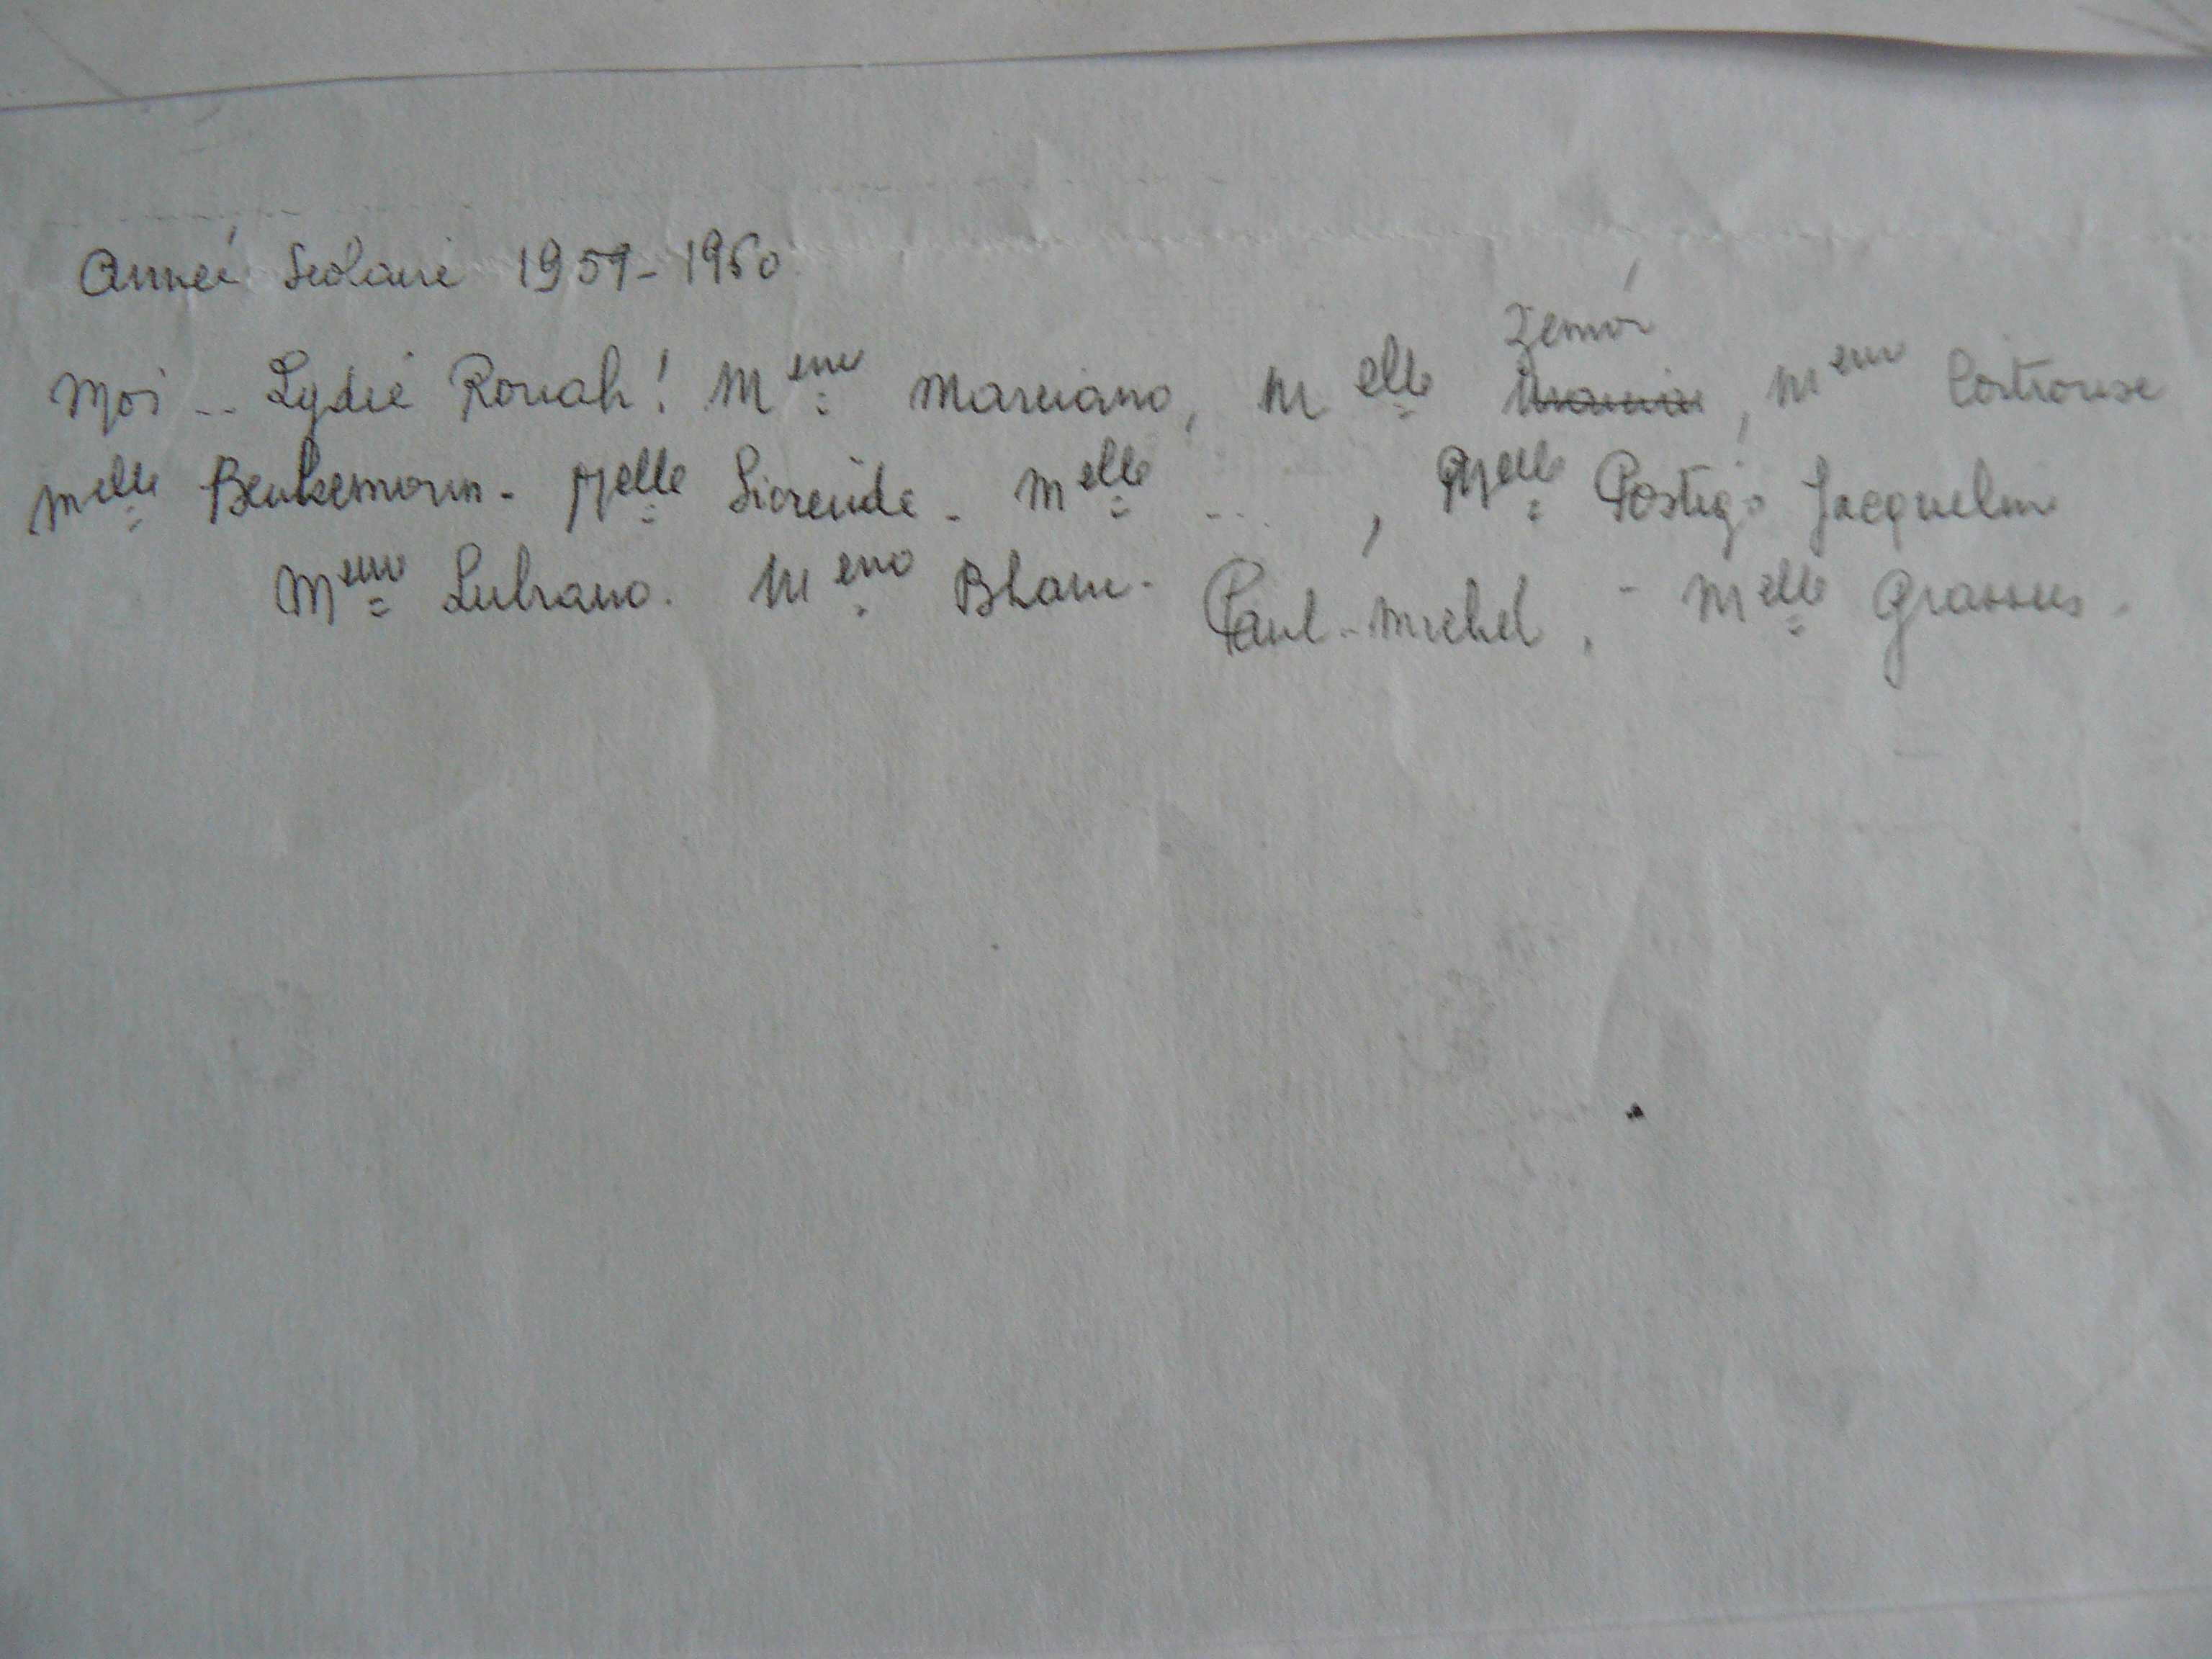 Année Scolaire 1959-1960
Moi... Lydie Rouah! Meme Marciano, Melle Zemór, Meme Costrouse
Melle Benkemoun - Melle Sicreide - Melle ..., Melle Postigo Jacqueline
Meme Lubrano. Meme Blanc - Paul-Michel, - Melle Grasses.